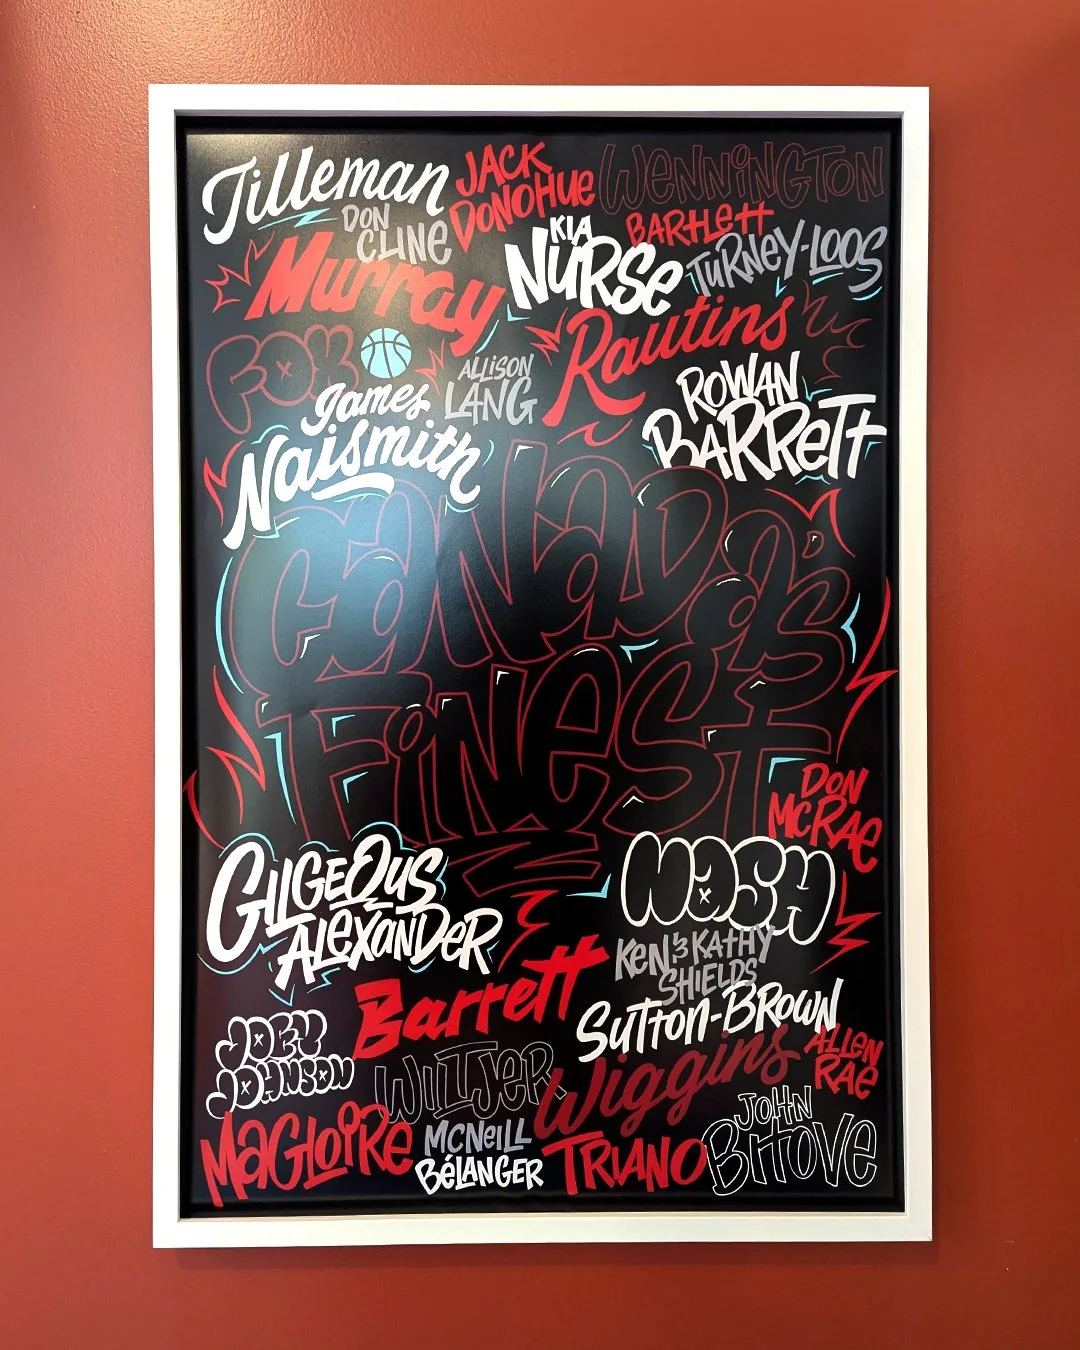 Tilleman
JACK
DONOHUE
WENNINGTON
DON
CLINE
KIA
NURSE
BARTLETT
TURNEY-LOOS
Murray
Rautins
FOX
ALLISON
LANG
ROWAN
BARRETT
James
Naismith
CANADA'S
FINEST
DON
MCRAE
GILGEOUS
ALEXANDER
NASH
KEN & KATHY
SHIELDS
Barrett
SUTTON-BROWN
JOEY
JOHNSON
WILTJER
Wiggins
ALLEN
RAE
MAGLOIRE
MCNEILL
BÉLANGER
TRIANO
JOHN
BITOVE